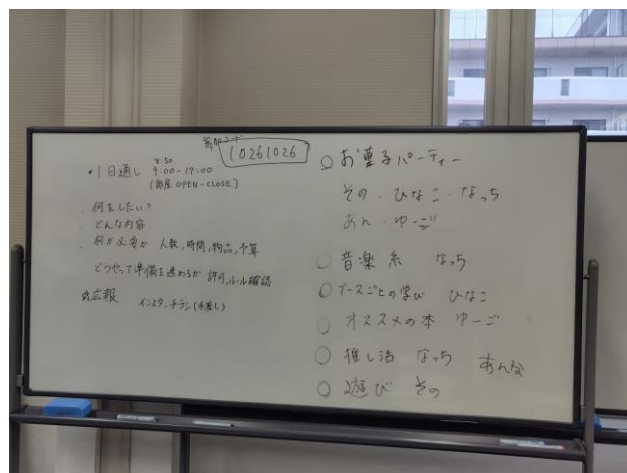 参加コード
10261026
8:50
・1日通し 9:00-17:00
(部屋 OPEN-CLOSE)
・何をしたい?
・どんな内容
・何が必要か 人数,時間,物品,予算
どうやって準備を進めるか 許可,ルール確認
☆広報 インスタ,チラシ(手渡し)
○お菓子パーティー
その・ひなこ・なっち
あん・ゆーご
○音楽系 なっち
○ブースごとの学び ひなこ
○オススメの本 ゆーご
○推し活 なっち あんな
○遊び その